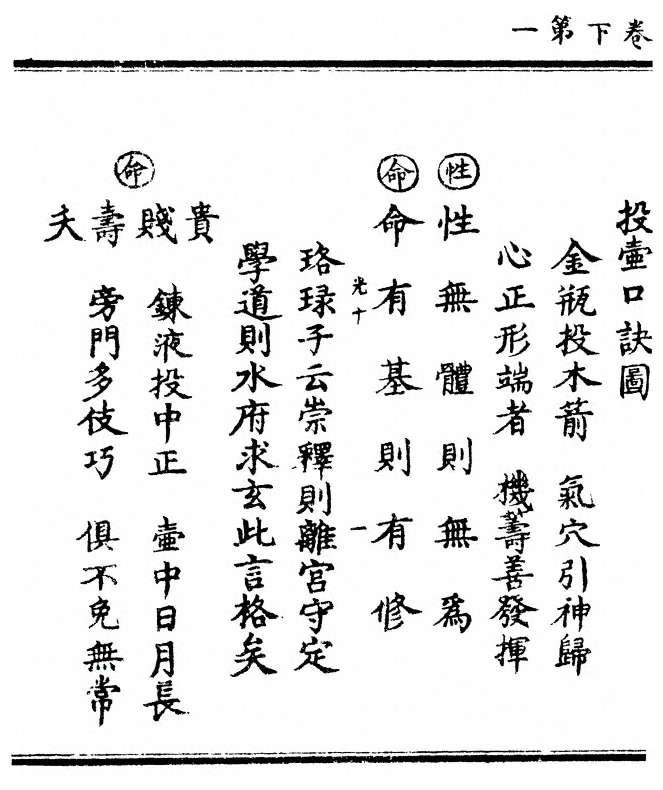 卷下第一
投壺口訣圖
金瓶投木箭 氣穴引神歸
心正形端者 機籌善發揮
性
性無體則無為
命
命有基則有修
光十 一
珞琭子云崇釋則離宮守定
學道則水府求玄此言格矣
命
貴賤壽夭
鍊液投中正 壺中日月長
旁門多伎巧 俱不免無常